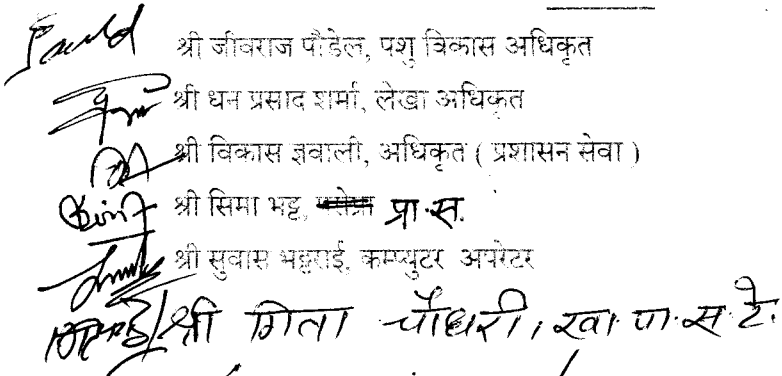 श्री जीवराज पौडेल, पशु विकास अधिकृत
श्री धन प्रसाद शर्मा, लेखा अधिकृत
श्री विकास ज्ञवाली, अधिकृत ( प्रशासन सेवा )
श्री सिमा भट्ट, प्रा.स.
श्री सुवास भट्टराई, कम्प्युटर अपरेटर
श्री गिता चौधरी, खा.पा.स.टे.